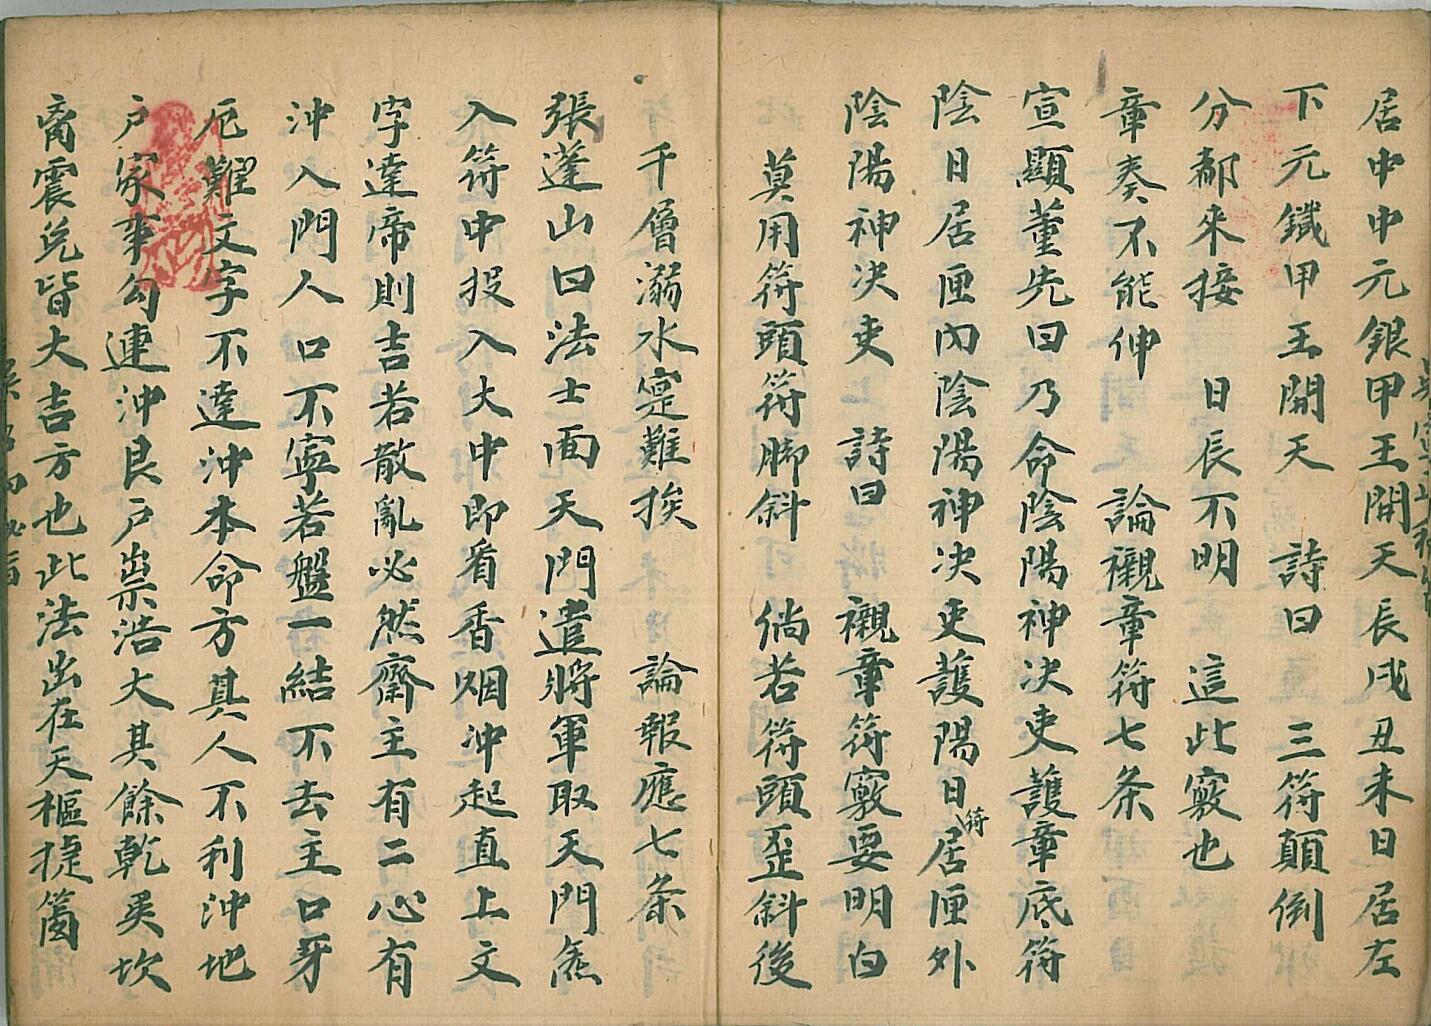 居中中元銀甲王開天辰戌丑未日居左
下元鐵甲王開天　詩曰　三符顛倒
分都来接　日辰不明　這此竅也
章奏不能伸　論襯章符七条
宣顯董先曰乃命陰陽神决吏護章底符
陰日居匣內陰陽神决吏護陽日符居匣外
陰陽神决吏　詩曰　襯章符竅要明白
莫用符頭符脚斜　倘若符頭歪斜後
千層溺水寔難挨　論報應七条
張蓬山曰法士面天門遣將軍取天門炁
入符中投入大中即看香烟沖起直上文
字達帝則吉若散亂必然齋主有二心有
沖入門人口不寧若盤一結不去主口牙
厄難文字不達沖本命方其人不利沖地
户家事勾連沖艮户祟浩大其餘乾巽坎
离震兌皆大吉方也此法出在天樞捷箇